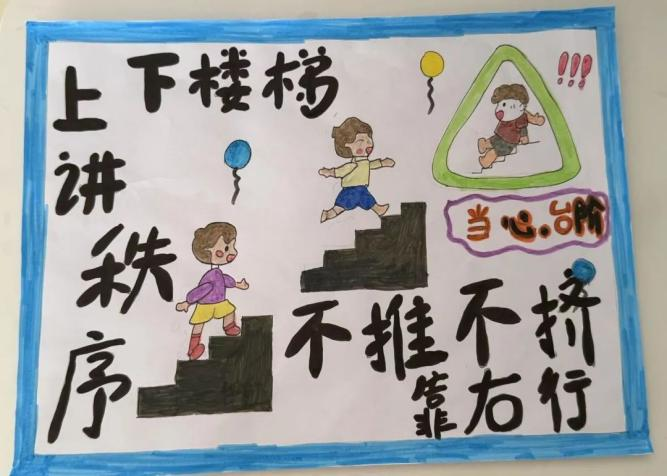 上下楼梯
讲秩序
!!!
当心.台阶
不推不挤
靠右行